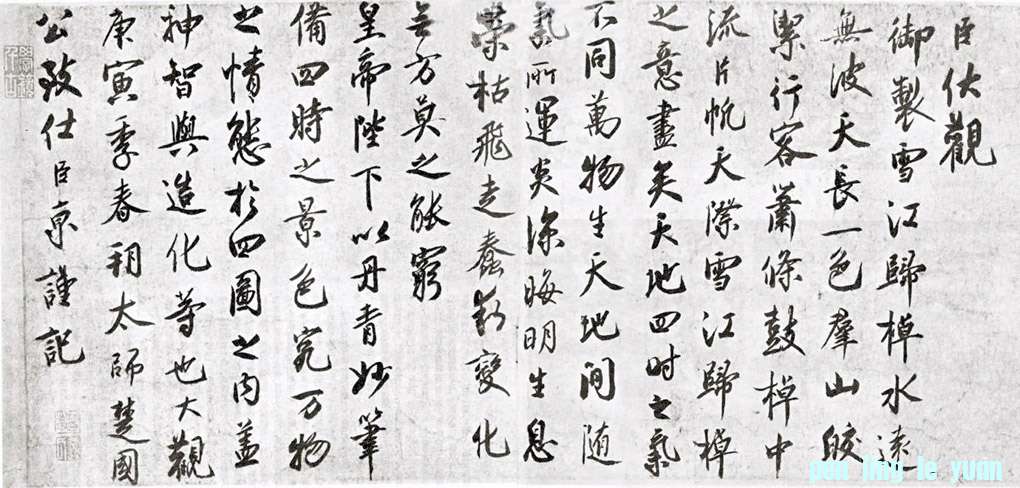 臣伏觀
御製雪江歸棹水遠
無波天長一色羣山皎
潔行客蕭條鼓棹中
流片帆天際雪江歸棹
之意盡矣天地四時之氣
不同萬物生天地間隨
氣所運炎涼晦明生息
榮枯飛走蠢動變化
無方莫之能窮
皇帝陛下以丹青妙筆
備四時之景色究万物
之情態於四圖之內蓋
神智與造化等也大觀
庚寅季春朔太師楚國
公致仕臣京謹記
pen jing le yuan